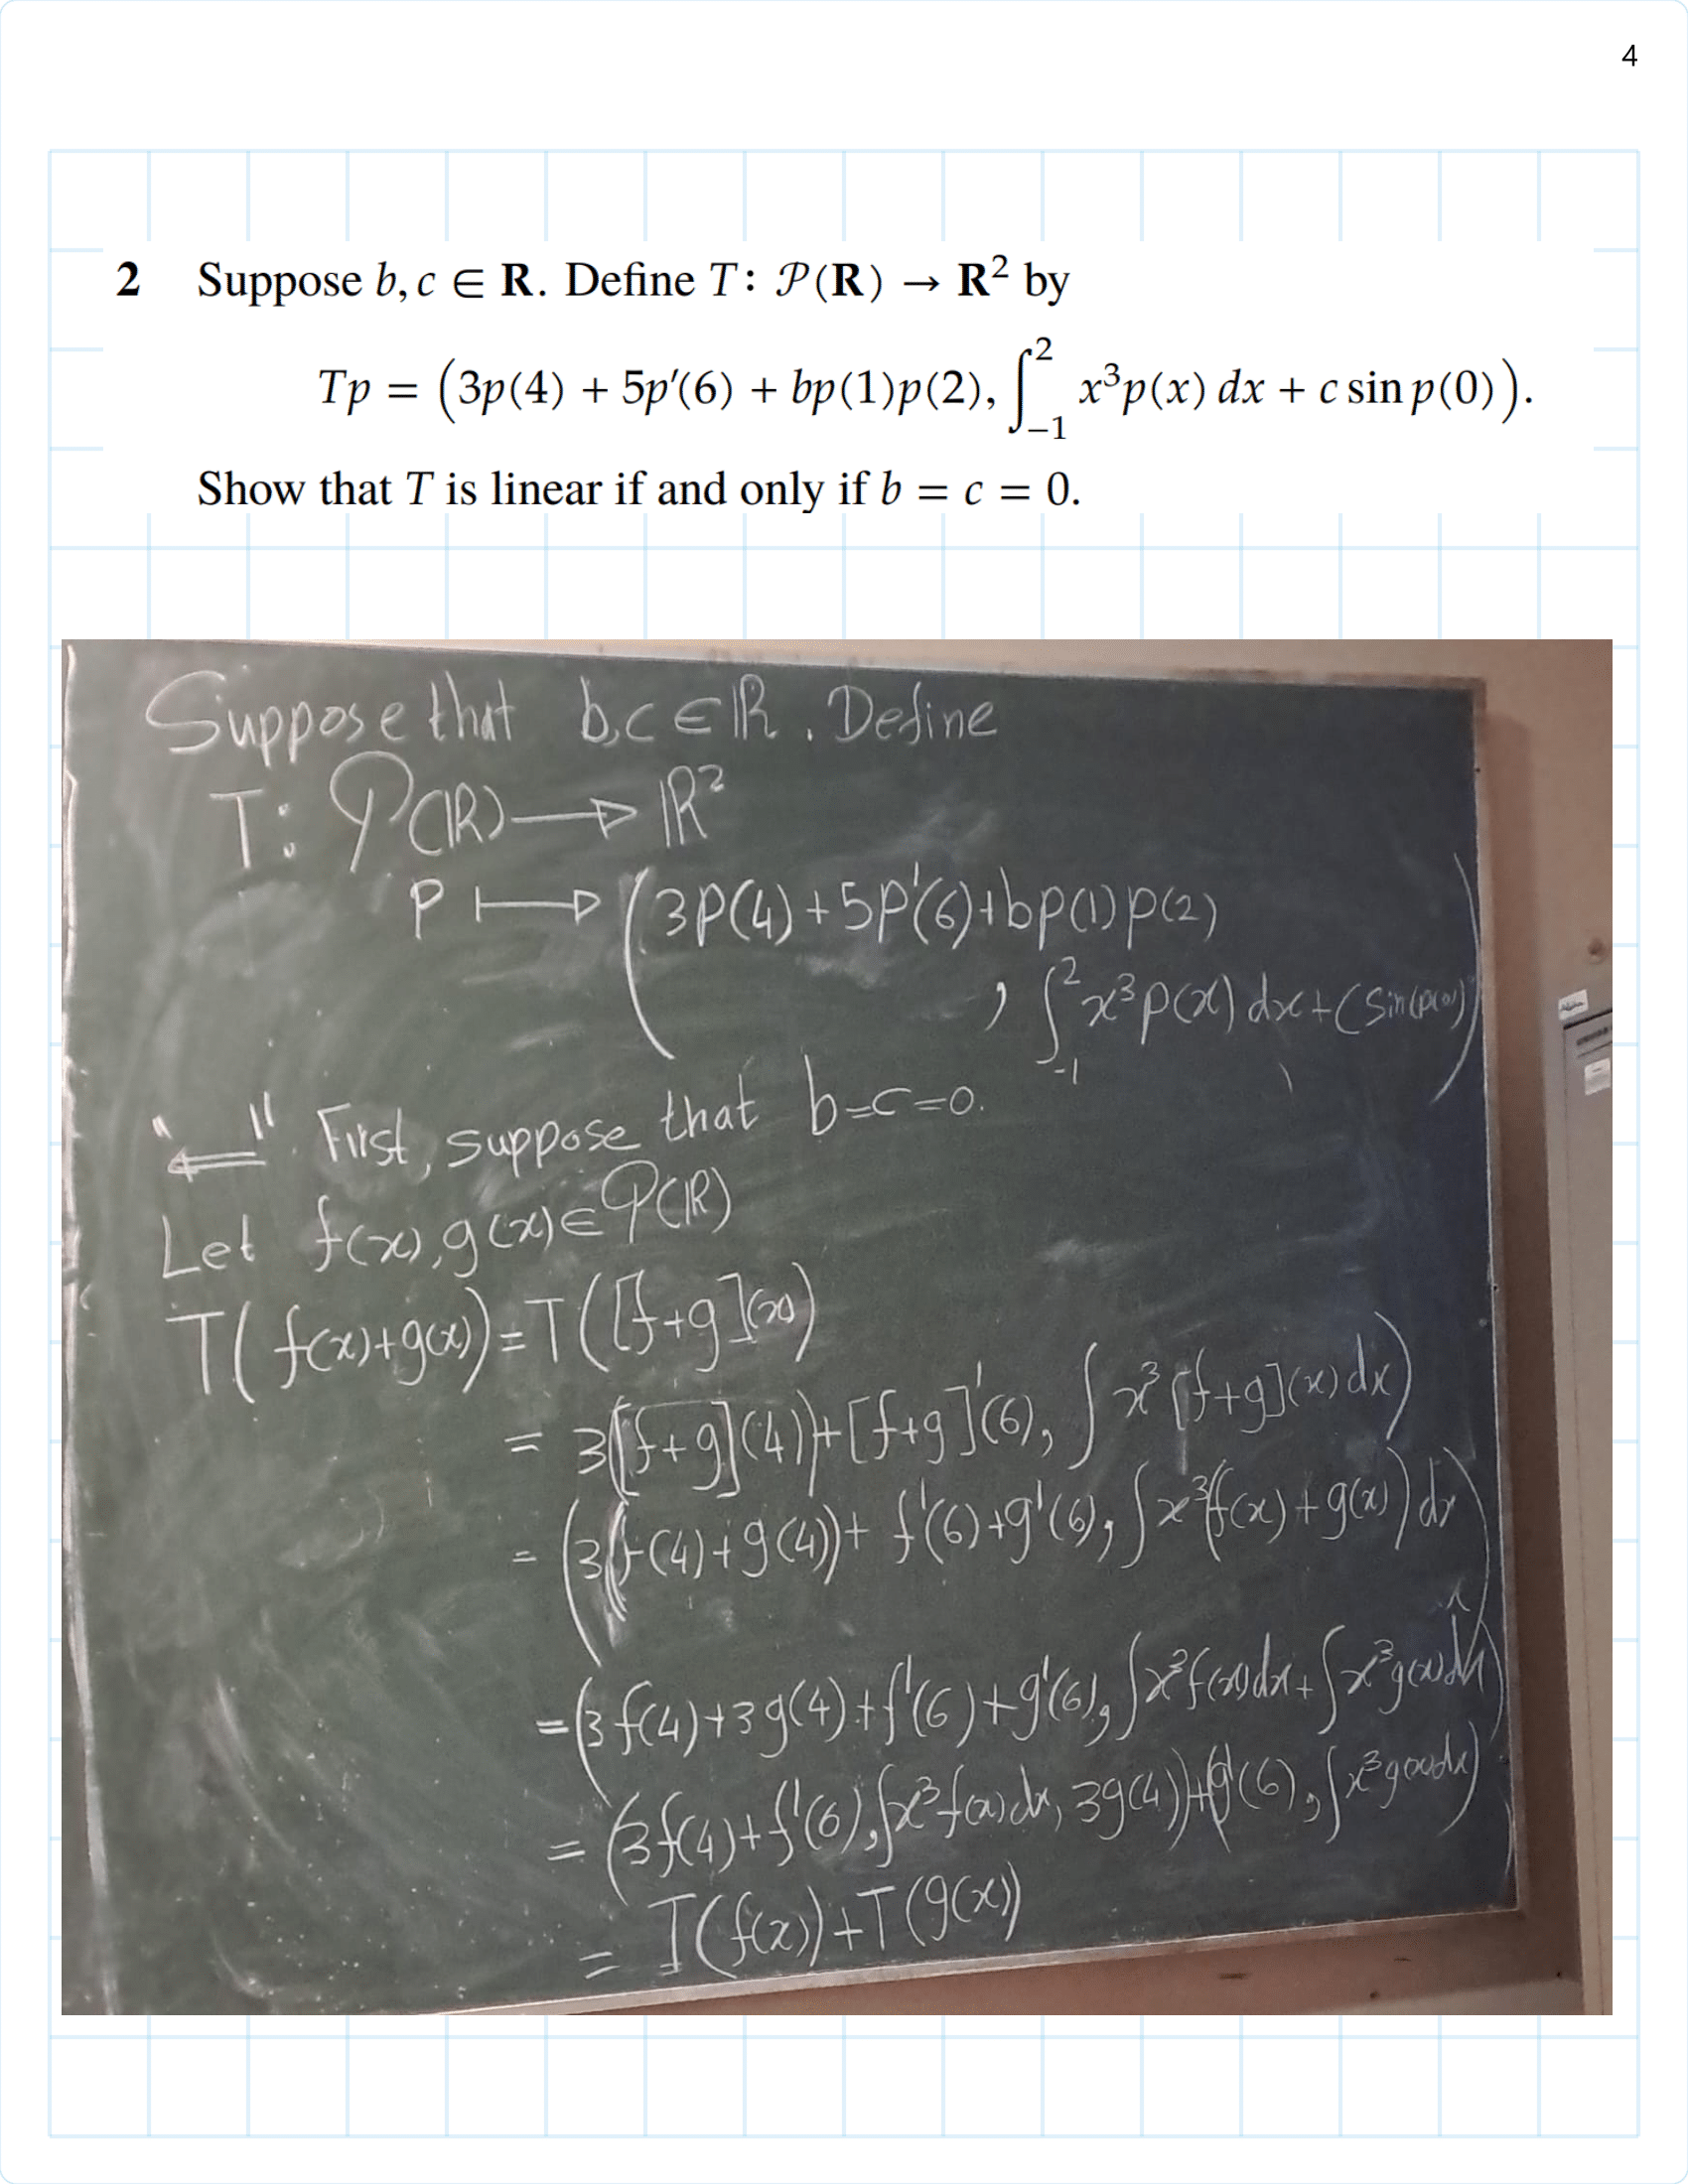 4
2 Suppose b, c ∈ R. Define T: 𝒫(R) → R² by
Tp = (3p(4) + 5p′(6) + bp(1)p(2), ∫₋₁² x³p(x) dx + c sin p(0)).
Show that T is linear if and only if b = c = 0.
Suppose that b,c ∈ ℝ. Define
T: 𝒫(ℝ) → ℝ²
P ↦ (3P(4)+5P'(6)+bp(1)p(2)
, ∫₋₁² x³p(x) dx + c sin(p(0)))
"⇐" . First, suppose that b=c=0.
Let f(x), g(x) ∈ 𝒫(ℝ)
T(f(x)+g(x)) = T([f+g](x))
= 3([f+g](4))+[f+g]'(6), ∫x³[f+g](x)dx)
= (3(f(4)+g(4))+ f'(6)+g'(6), ∫x³(f(x)+g(x))dx)
= (3f(4)+3g(4)+f'(6)+g'(6), ∫x³f(x)dx+∫x³g(x)dx)
= (3f(4)+f'(6), ∫x³f(x)dx, 3g(4))+(g'(6), ∫x³g(x)dx)
= T(f(x))+T(g(x))